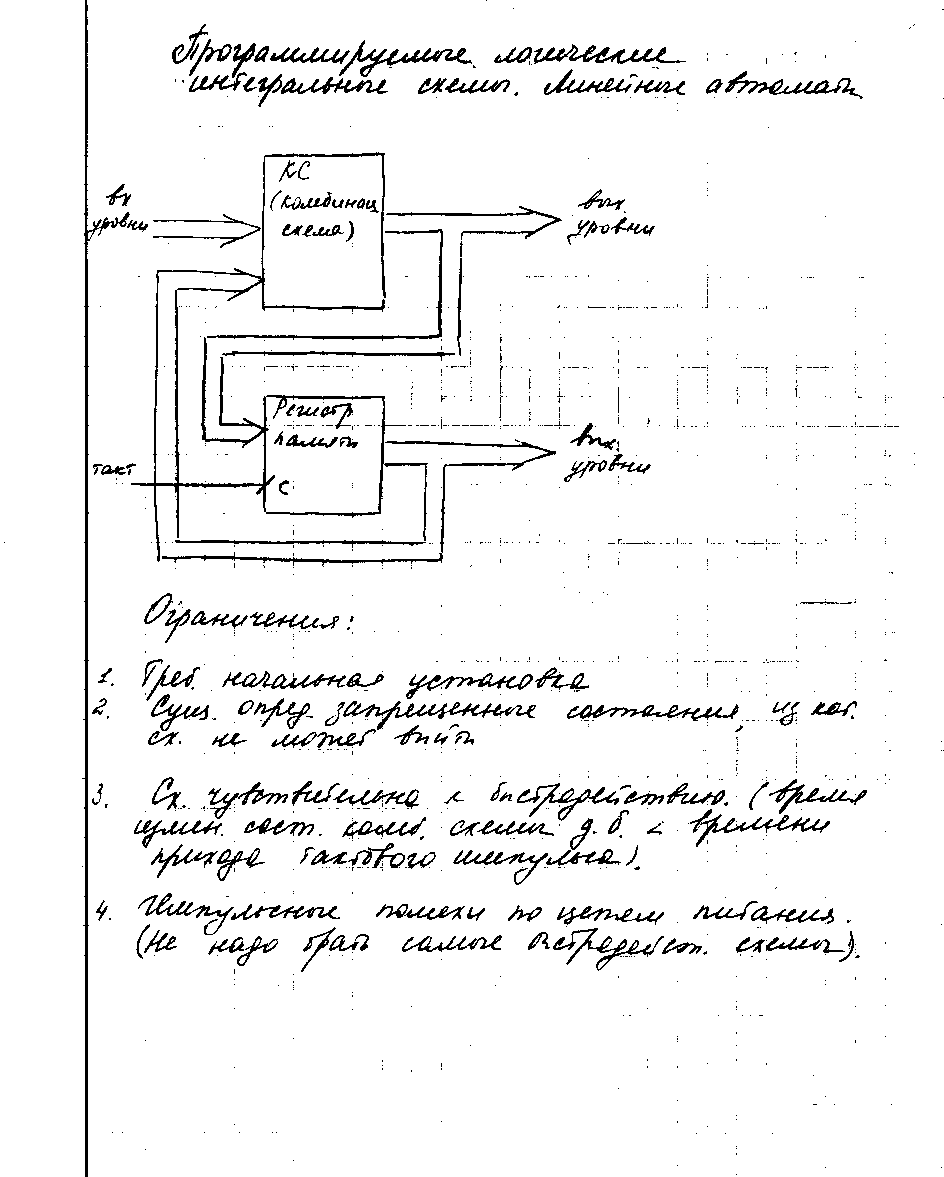 Программируемые логические
интегральные схемы. Линейные автоматы
КС
(комбинац.
схема)
вх
уровни
вых
уровни
Регистр
памяти
С
такт
вых.
уровни
Ограничения:
1. Треб. начальная установка
2. Сущ. опред. запрещенные состояния, из кот.
сх. не может выйти
3. Сх. чувствительна к быстродействию. (время
измен. сост. комб. схемы д.б. < времени
прихода тактового импульса).
4. Импульсные помехи по цепям питания.
(Не надо брать самые быстродейст. схемы).